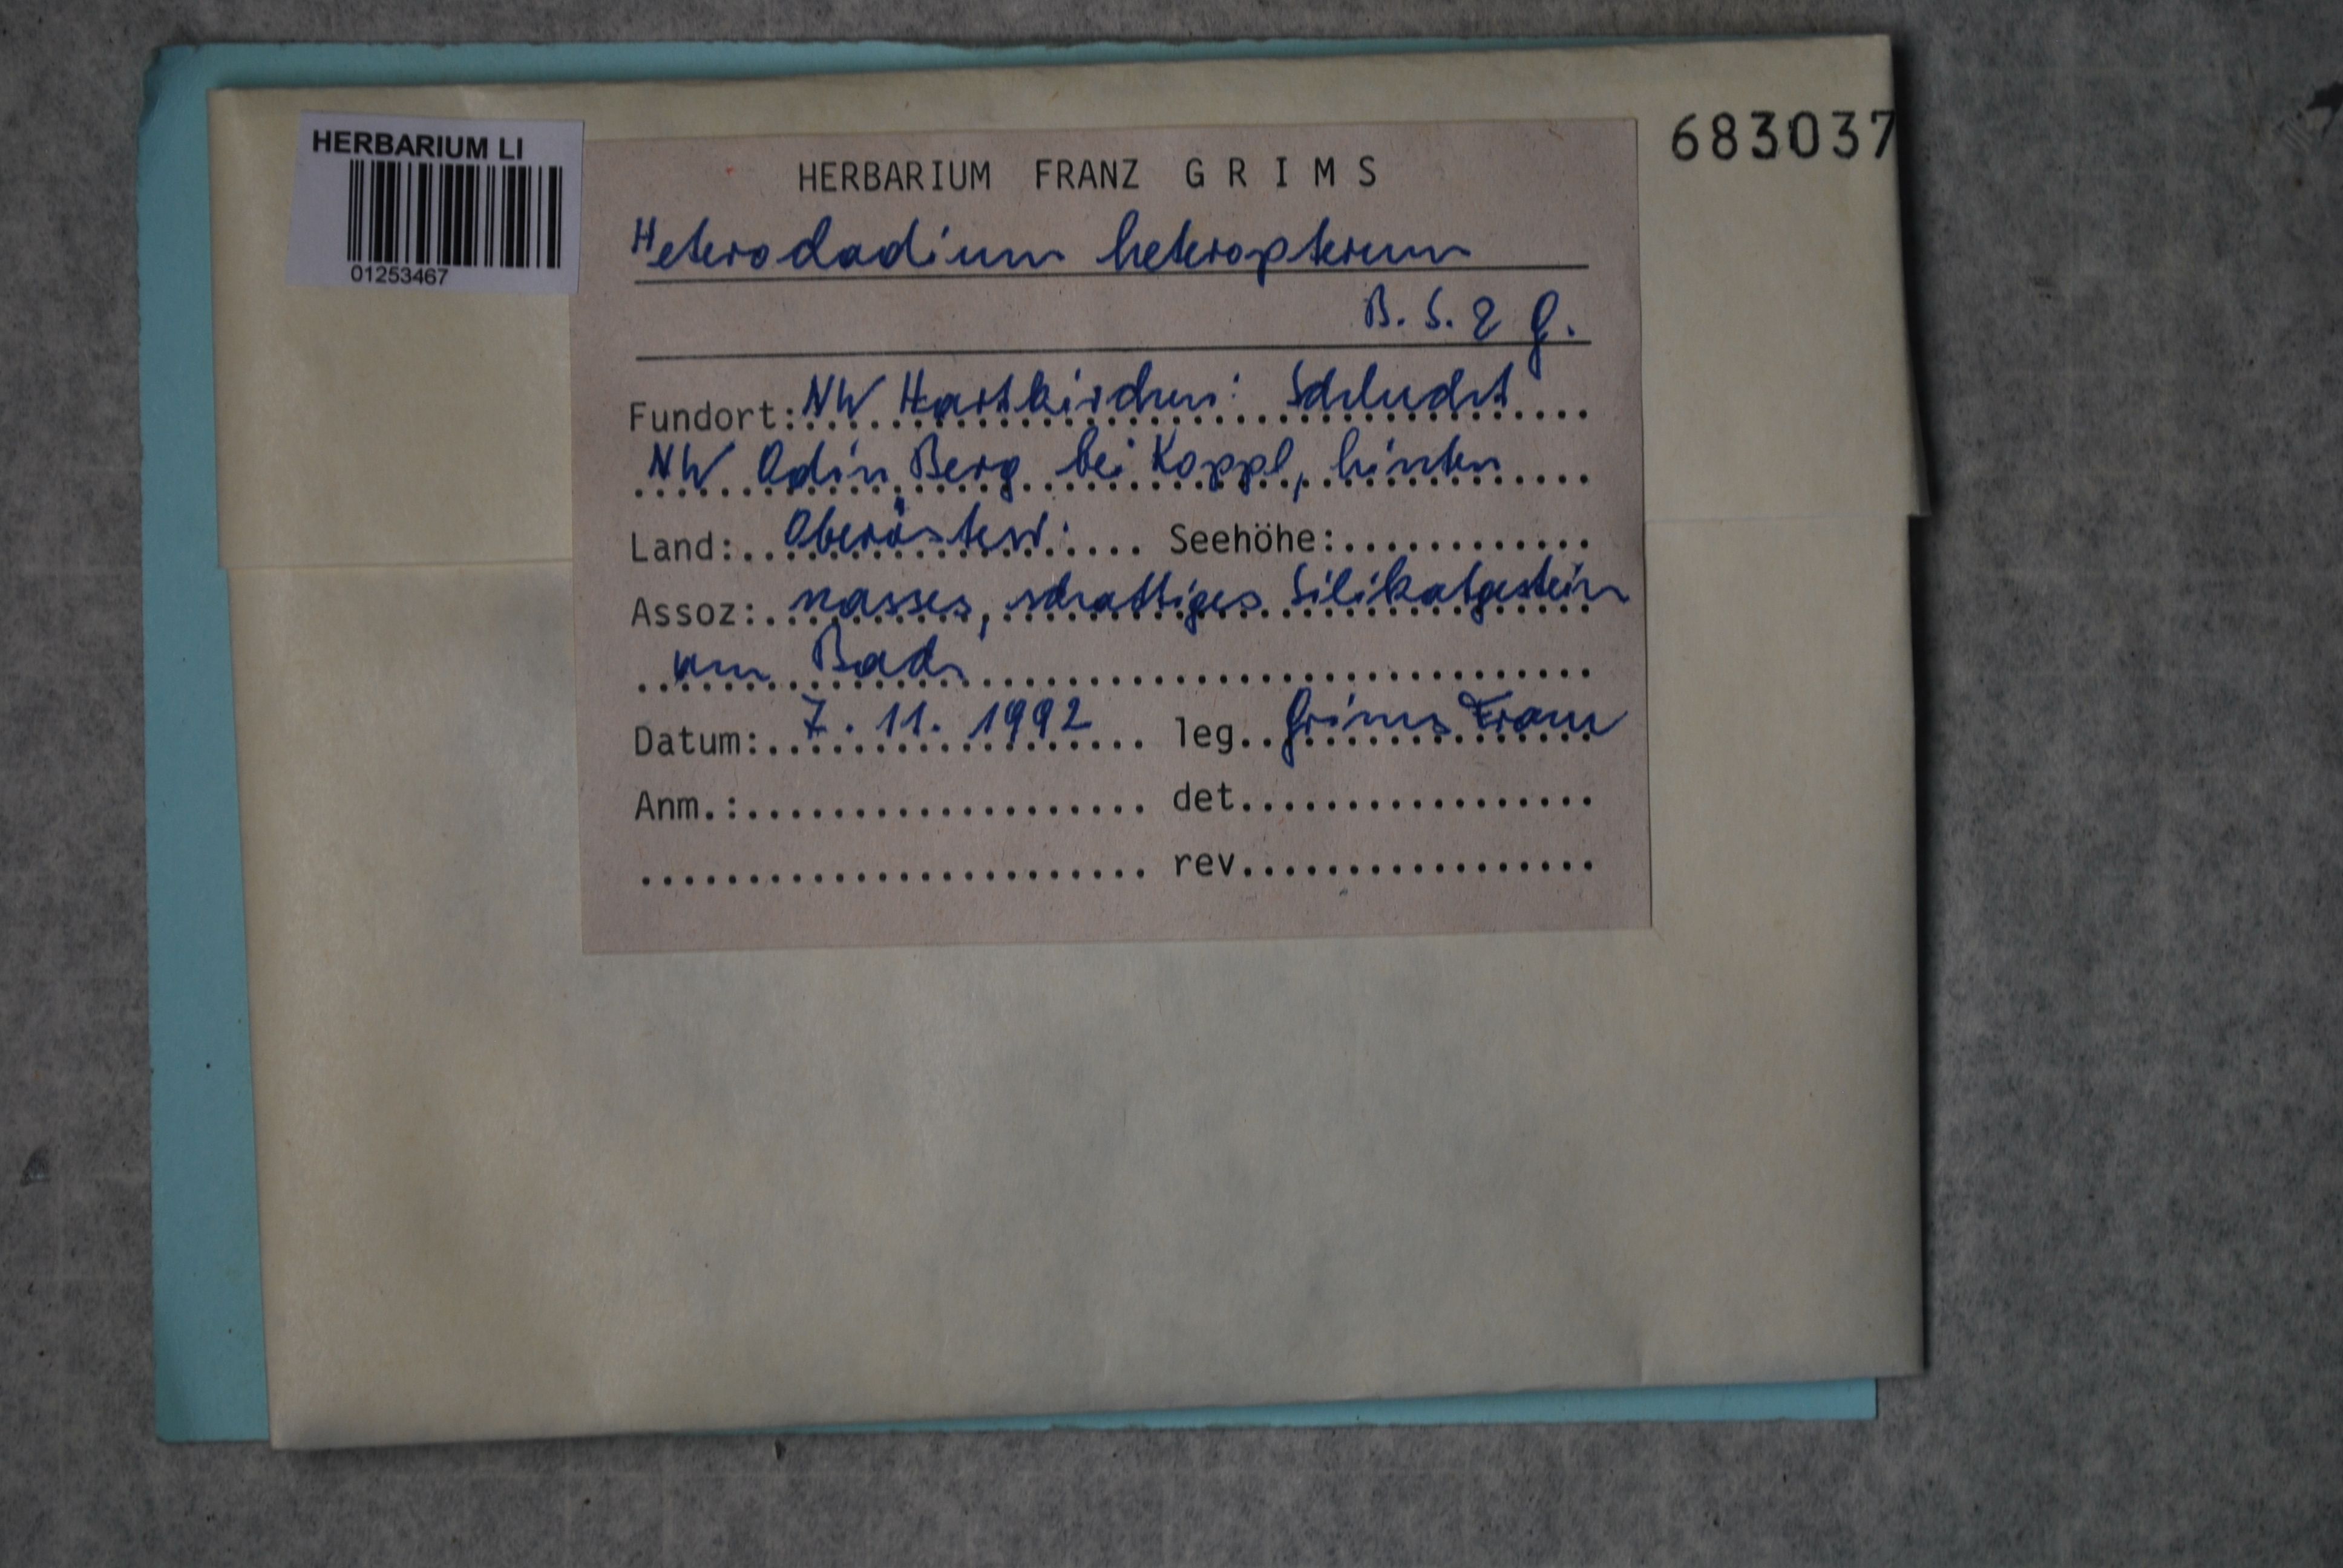 HERBARIUM LI
01253467
683037
HERBARIUM FRANZ GRIMS
Heterocladium heteropterum
B. S. & G.
Fundort: NW Hartkirchen: Schlucht
NW Oding Berg bei Koppl, hinten
Land: Oberösterr. Seehöhe:
Assoz: nasses, schattiges Silikatgestein
am Bach
Datum: 7. 11. 1992 leg. Grims Franz
Anm.: det.
rev.